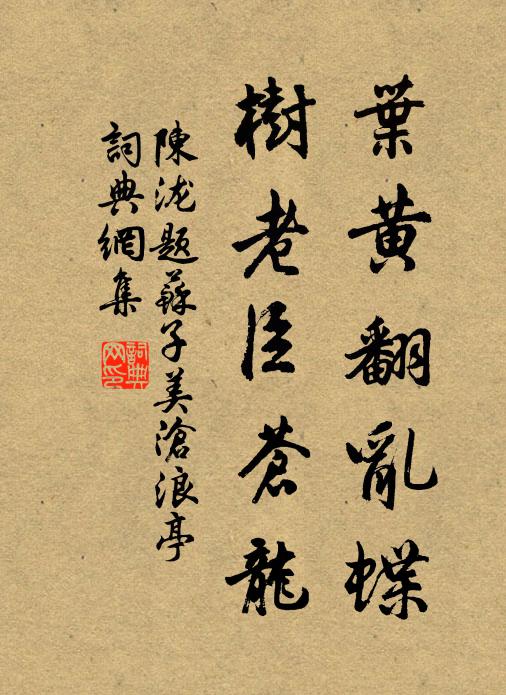 葉黄翻亂蝶
樹老臣蒼龍
陳泷題蘇子美滄浪亭
詞典網集
詞典網印